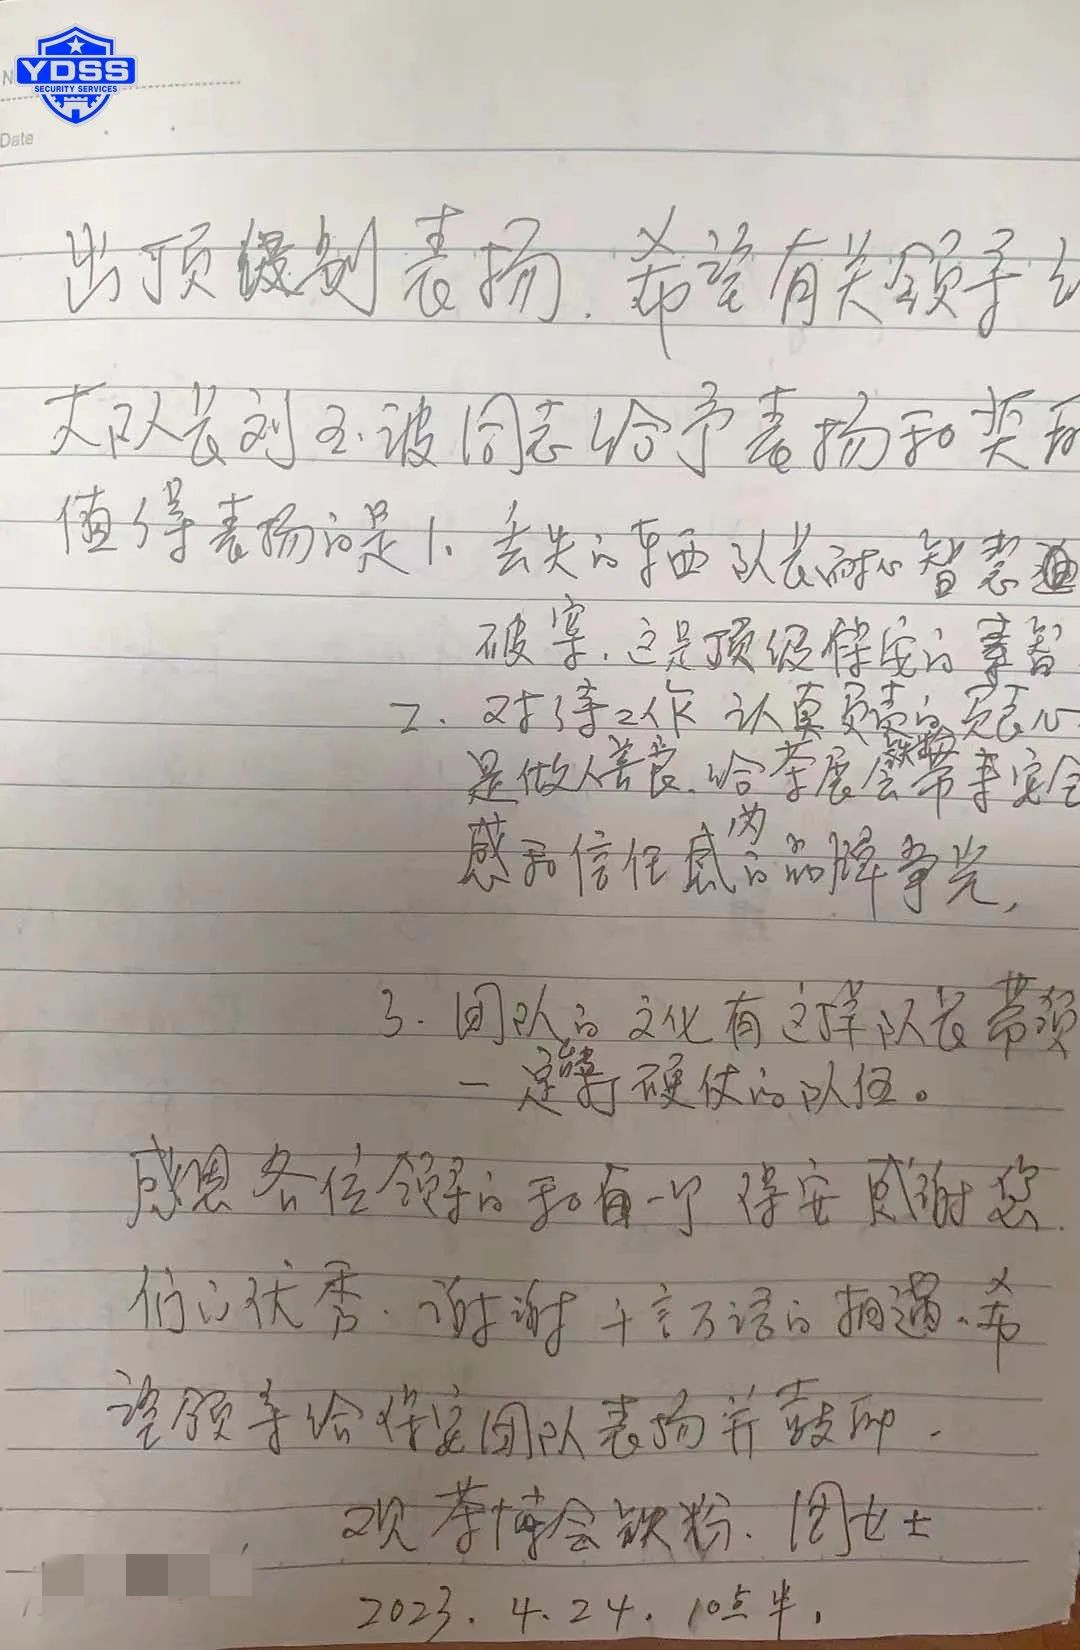 YDSS
SECURITY SERVICES
Date
出顶级别表扬.希望有关领导
大队长刘玉波同志给予表扬和奖
值得表扬的是1、丢失的东西队长耐心智慧
破案.这是顶级保安的素智
2.对待工作认真负责的
是做人善良.给茶展会铁粉带来安全
感和信任感为的品牌争光,
3.团队的文化有这样队长带领
一定能打硬仗的队伍。
感恩各位领导的和有一个保安感谢您
们的优秀.谢谢千言万语的相遇.希
望领导给保安团队表扬并鼓励.
观茶博会铁粉.周女士
2023.4.24.10点半,